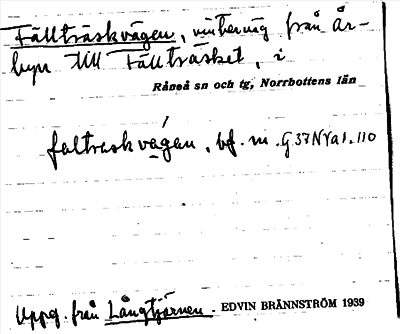 Fällträskvägen, vinterväg från År-
byn till Fällträsket, i
Råneå sn och tg, Norrbottens län
faltraskvägen, bf. m. G37NYa1.110
Uppg. från Långtjärnen. EDVIN BRÄNNSTRÖM 1939